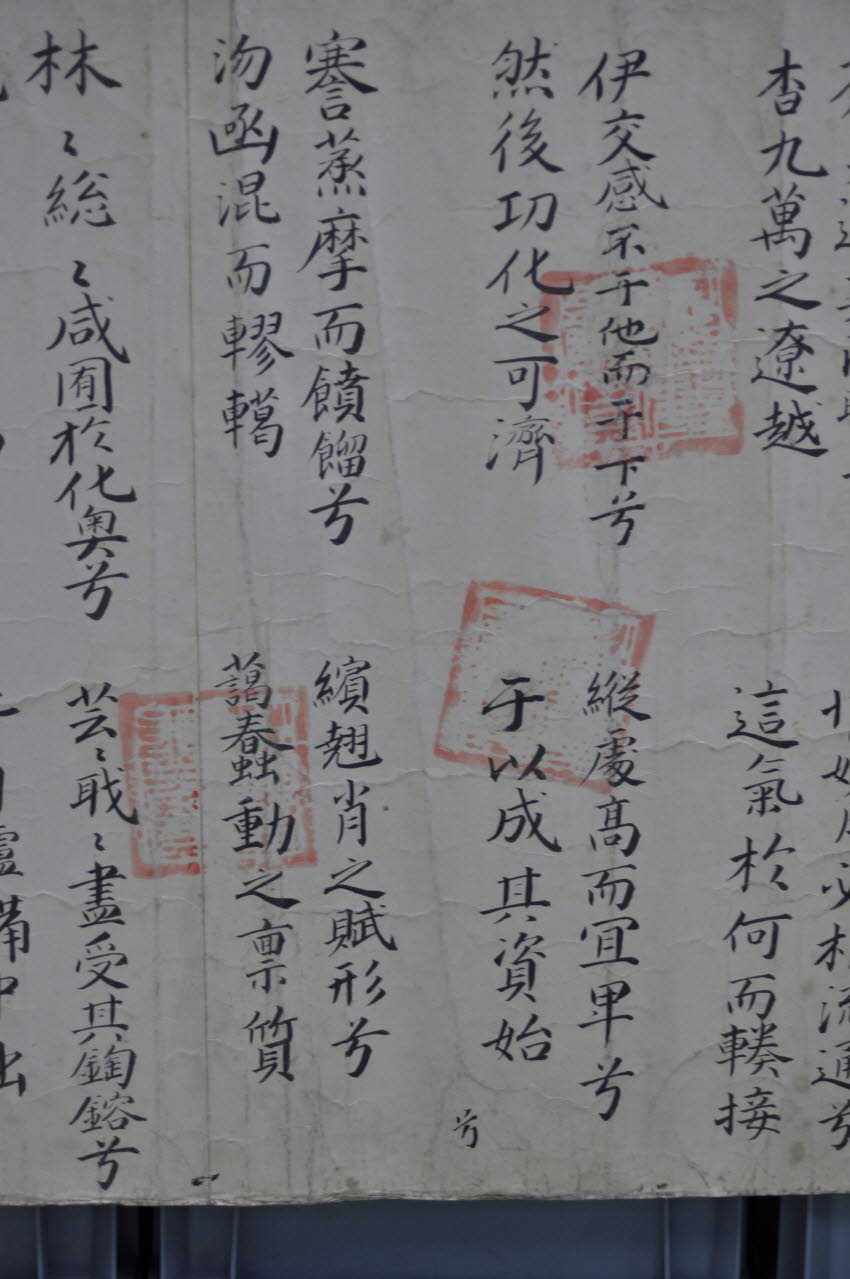 必相流通兮
杳九萬之遼越
這氣於何而輳接
伊交感不于他而于下兮
縱處髙而冝卑兮
然後功化之可濟
于以成其資始
兮
謇蒸摩而饙餾兮
繽翹肖之賦形兮
沕凾混而轇轕
藹蠢動之稟質
林〻総〻咸囿於化奧兮
芸〻戢〻盡受其鋾鎔兮